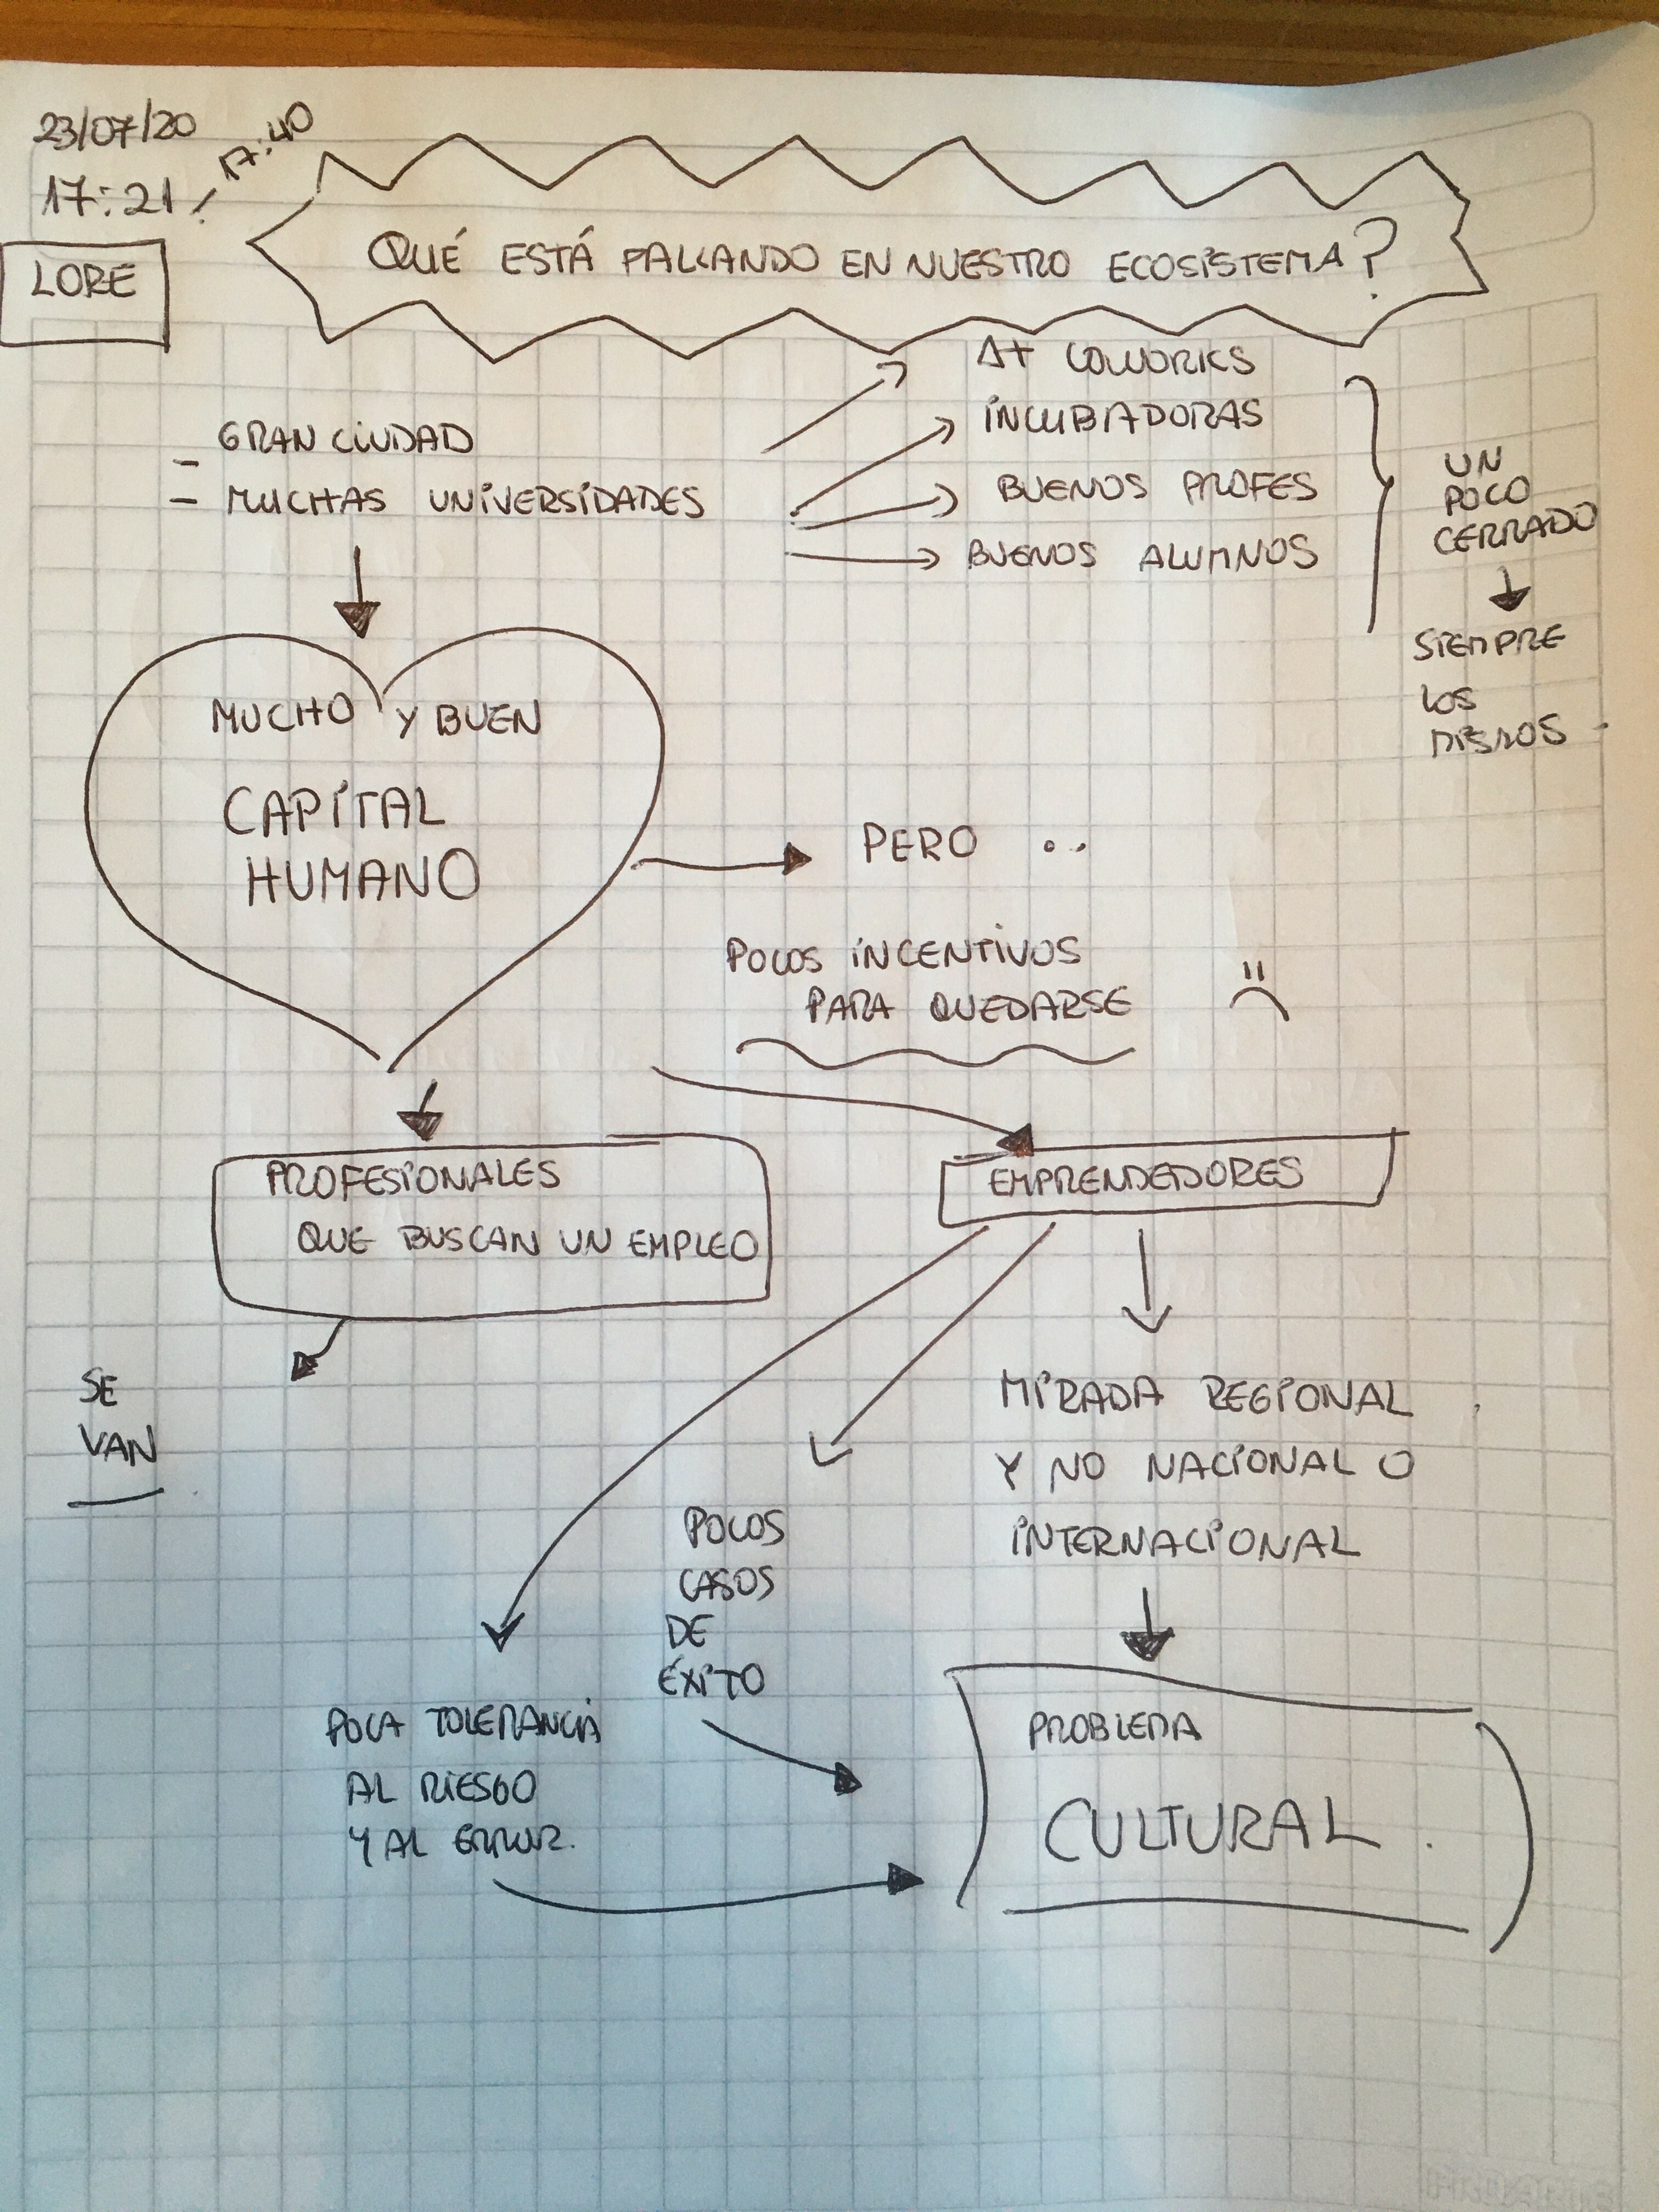 23/07/20
17:21 / 17:40
LORE
QUÉ ESTÁ FALLANDO EN NUESTRO ECOSISTEMA?
- GRAN CIUDAD
- MUCHAS UNIVERSIDADES
COWORKS
INCUBADORAS
BUENOS PROFES
BUENOS ALUMNOS
UN
POCO
CERRADO
SIEMPRE
LOS
MISMOS
MUCHO Y BUEN
CAPITAL
HUMANO
PERO ..
POCOS INCENTIVOS
PARA QUEDARSE
PROFESIONALES
QUE BUSCAN UN EMPLEO
EMPRENDEDORES
SE
VAN
MIRADA REGIONAL
Y NO NACIONAL O
INTERNACIONAL
POCOS
CASOS
DE
ÉXITO
POCA TOLERANCIA
AL RIESGO
Y AL ERROR.
PROBLEMA
CULTURAL.